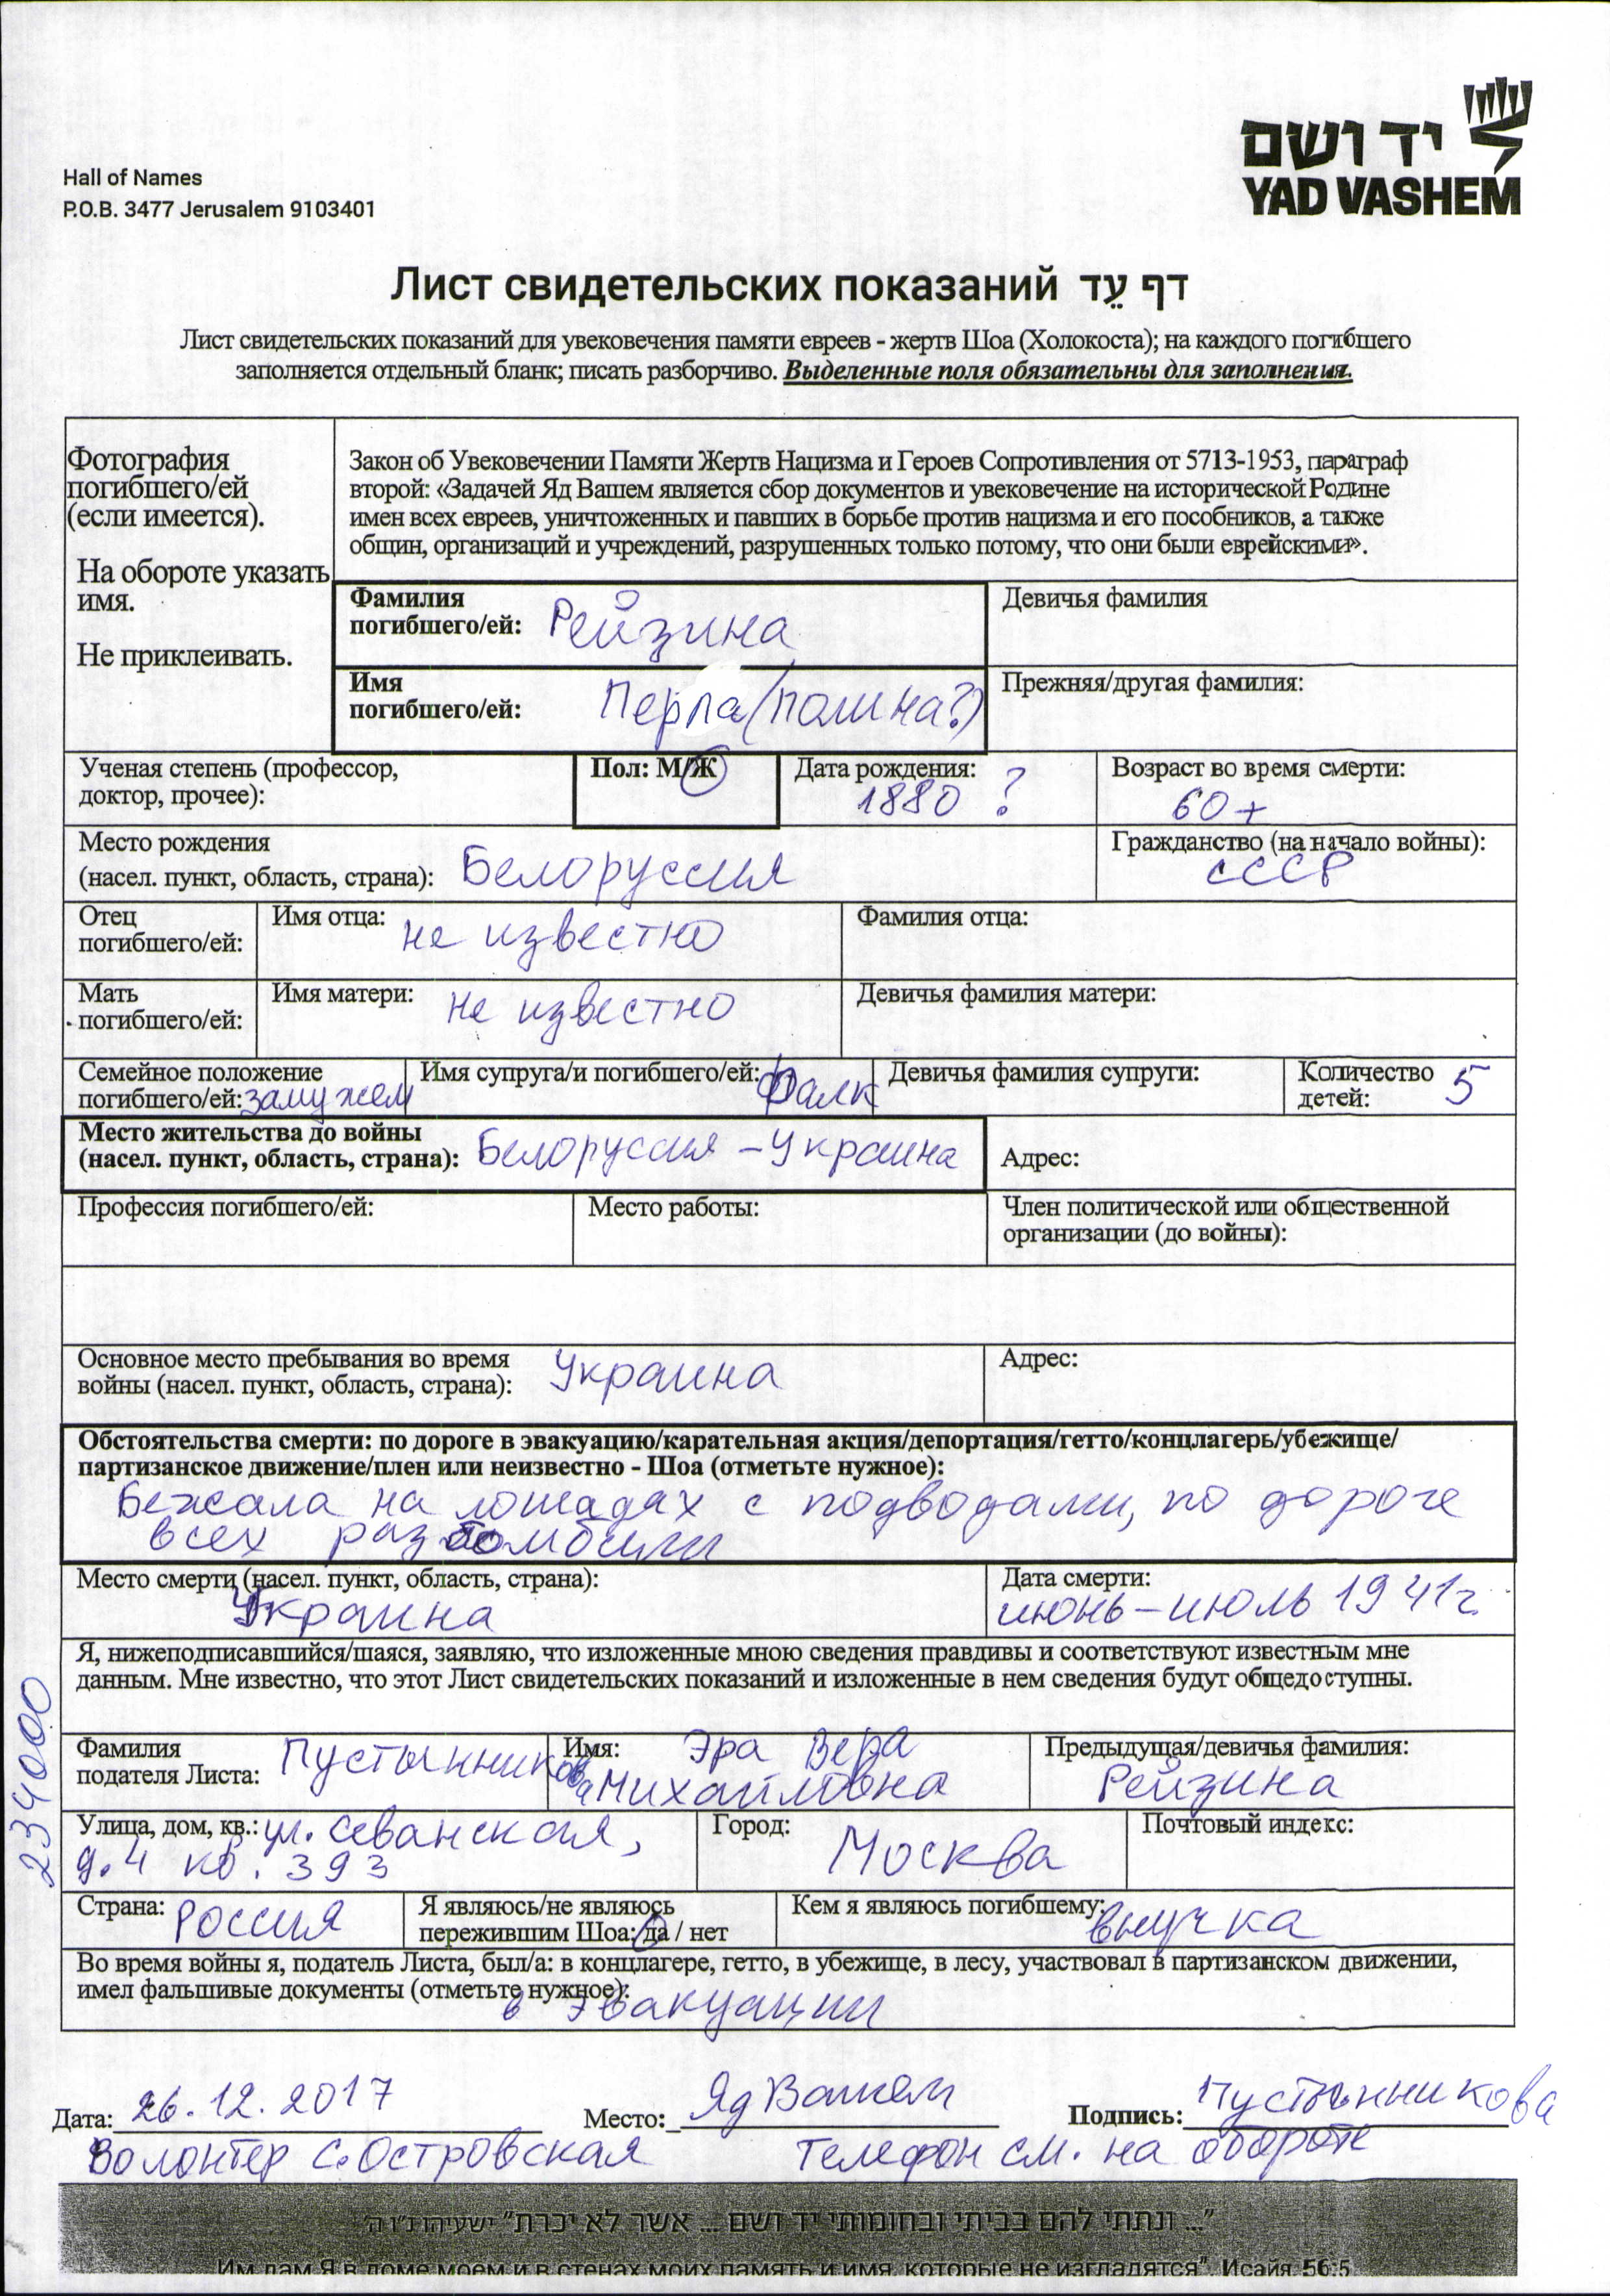 יד ושם
YAD VASHEM
Hall of Names
P.O.B. 3477 Jerusalem 9103401
Лист свидетельских показаний דף עֵד
Лист свидетельских показаний для увековечения памяти евреев - жертв Шоа (Холокоста); на каждого погибшего
заполняется отдельный бланк; писать разборчиво. Выделенные поля обязательны для заполнения.
Фотография
погибшего/ей
(если имеется).
На обороте указать
имя.
Не приклеивать.
Закон об Увековечении Памяти Жертв Нацизма и Героев Сопротивления от 5713-1953, параграф
второй: «Задачей Яд Вашем является сбор документов и увековечение на исторической Родине
имен всех евреев, уничтоженных и павших в борьбе против нацизма и его пособников, а также
общин, организаций и учреждений, разрушенных только потому, что они были еврейскими».
Фамилия
погибшего/ей: Рейзина
Девичья фамилия
Имя
погибшего/ей: Перла (Полина?)
Прежняя/другая фамилия:
Ученая степень (профессор,
доктор, прочее):
Пол: М/Ж
Дата рождения:
1880 ?
Возраст во время смерти:
60+
Место рождения
(насел. пункт, область, страна): Белоруссия
Гражданство (на начало войны):
СССР
Отец
погибшего/ей:
Имя отца: не известно
Фамилия отца:
Мать
погибшего/ей:
Имя матери: не известно
Девичья фамилия матери:
Семейное положение
погибшего/ей: замужем
Имя супруга/и погибшего/ей: Фалк
Девичья фамилия супруги:
Количество
детей: 5
Место жительства до войны
(насел. пункт, область, страна): Белоруссия - Украина
Адрес:
Профессия погибшего/ей:
Место работы:
Член политической или общественной
организации (до войны):
Основное место пребывания во время
войны (насел. пункт, область, страна): Украина
Адрес:
Обстоятельства смерти: по дороге в эвакуацию/карательная акция/депортация/гетто/концлагерь/убежище/
партизанское движение/плен или неизвестно - Шоа (отметьте нужное):
Бежала на лошадях с подводами, по дороге
всех разбомбили
Место смерти (насел. пункт, область, страна):
Украина
Дата смерти:
июнь-июль 1941г.
Я, нижеподписавшийся/шаяся, заявляю, что изложенные мною сведения правдивы и соответствуют известным мне
данным. Мне известно, что этот Лист свидетельских показаний и изложенные в нем сведения будут общедоступны.
Фамилия
подателя Листа: Пустынникова
Имя: Эра Вера
Михайловна
Предыдущая/девичья фамилия:
Рейзина
Улица, дом, кв.: ул. Севанская,
д.4 кв. 393
Город:
Москва
Почтовый индекс:
Страна: Россия
Я являюсь/не являюсь
пережившим Шоа: да / нет
Кем я являюсь погибшему:
внучка
Во время войны я, податель Листа, был/а: в концлагере, гетто, в убежище, в лесу, участвовал в партизанском движении,
имел фальшивые документы (отметьте нужное):
в эвакуации
Дата: 26.12.2017
Место: Яд Вашем
Подпись: Пустынникова
Волонтер С. Островская
телефон см. на обороте
"... ונתתי להם בביתי ובחומותי יד ושם ... אשר לא יכרת" ישעיהו נ"ו ה'
Им дам Я в доме моем и в стенах моих память и имя, которые не изгладятся". Исайя, 56:5
234000